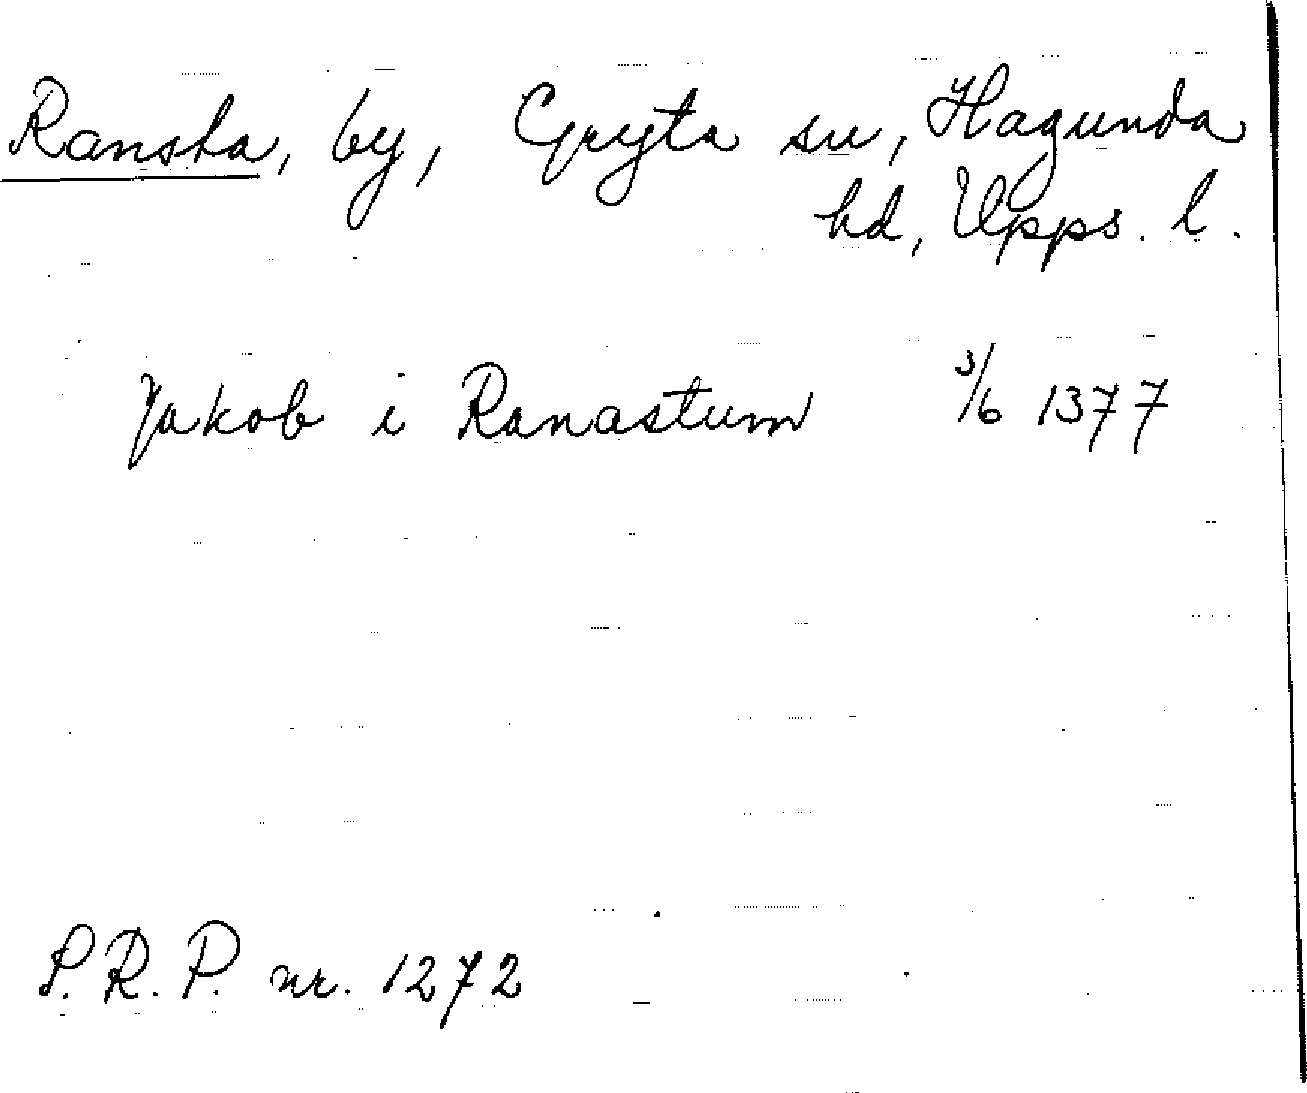 Ransta, by, Gryta sn, Hagunda
hd, Upps. l.
Jakob i Ranastum 3/6 1377
S.R.P. nr. 1272